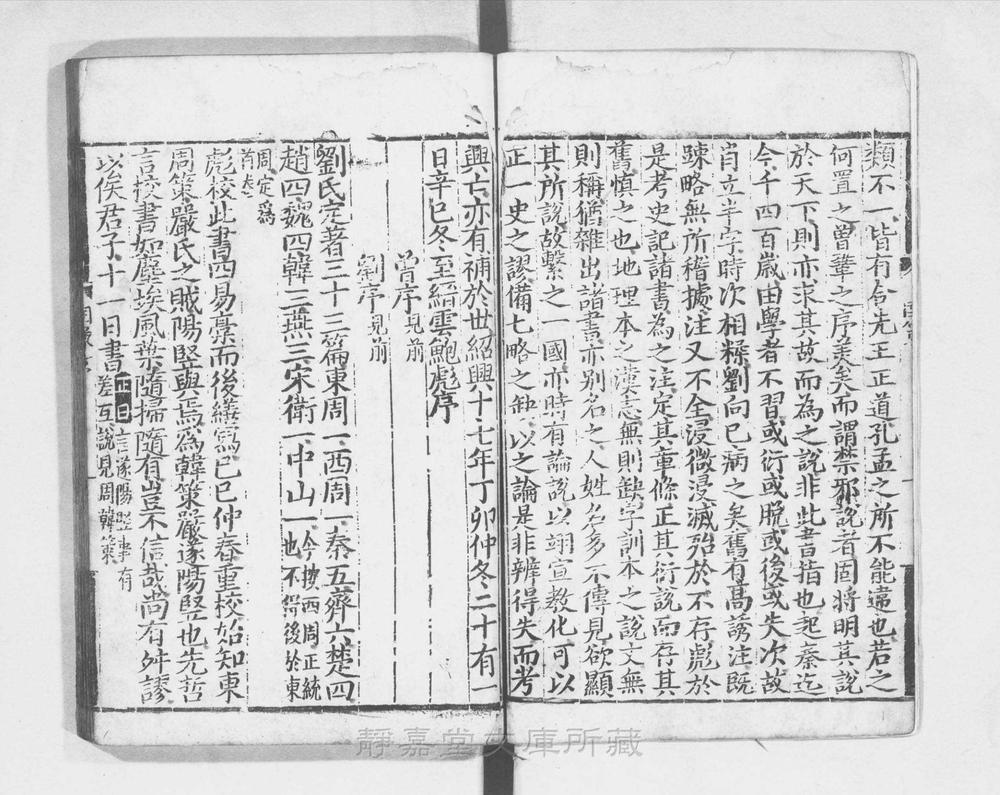 類不一皆有合先王正道孔孟之所不能違也若之
何置之曾鞏之序美矣而謂禁邪說者固將明其說
於天下則亦求其故而為之說非此書指也起秦迄
今千四百歲由學者不習或衍或脫或後或失次故
肖立半字時次相糅劉向已病之矣舊有高誘注既
踈略無所稽據注又不全浸微浸滅殆於不存彪於
是考史記諸書為之注定其章條正其衍說而存其
舊慎之也地理本之漢志無則缺字訓本之說文無
則稱猶雜出諸書亦別名之人姓名多不傳見欲顯
其所說故繫之一國亦時有論說以翊宣教化可以
正一史之謬備七略之缺以之論是非辨得失而考
興亡亦有補於世紹興十七年丁卯仲冬二十有一
日辛巳冬至縉雲鮑彪序
曾序見前
劉序見前
劉氏定著三十三篇東周一西周一秦五齊六楚四
趙四魏四韓三燕三宋衛一中山一今按西周正統
也不得後於東
周定爲
首卷
彪校此書四易稾而後繕寫已巳仲春重校始知東
周策嚴氏之賊陽竪與焉為韓策嚴遂陽竪也先哲
言校書如塵埃風葉隨掃隨有豈不信哉尚有舛謬
以俟君子十一日書 正曰言遂陽竪事有
差互說見周韓策
靜嘉堂文庫所藏